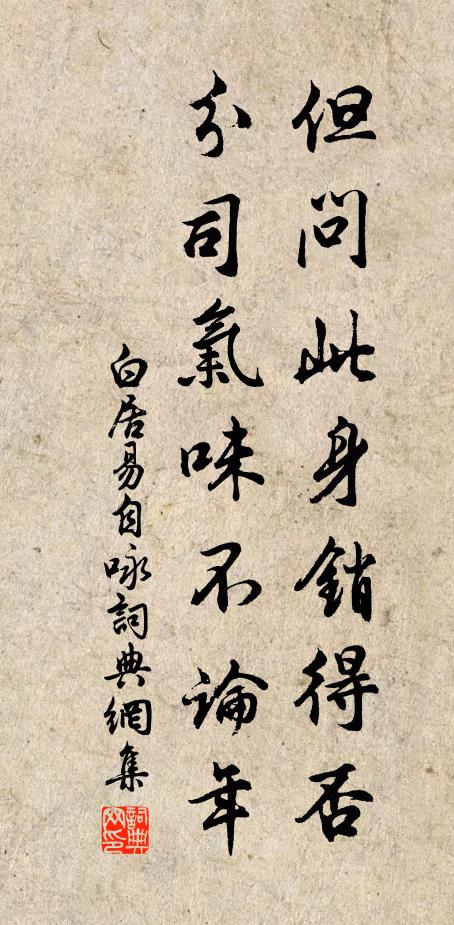 但問此身銷得否
分司氣味不論年
白居易自咏詞典網集
詞典網印